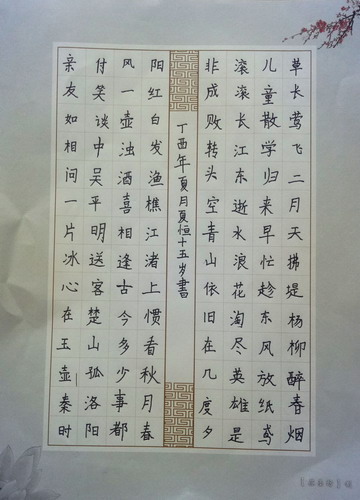 草长莺飞二月天拂堤杨柳醉春烟
儿童散学归来早忙趁东风放纸鸢
滚滚长江东逝水浪花淘尽英雄是
非成败转头空青山依旧在几度夕
丁酉年夏月夏恒十五岁書
阳红白发渔樵江渚上惯看秋月春
风一壶浊酒喜相逢古今多少事都
付笑谈中吴平明送客楚山孤洛阳
亲友如相问一片冰心在玉壶秦时